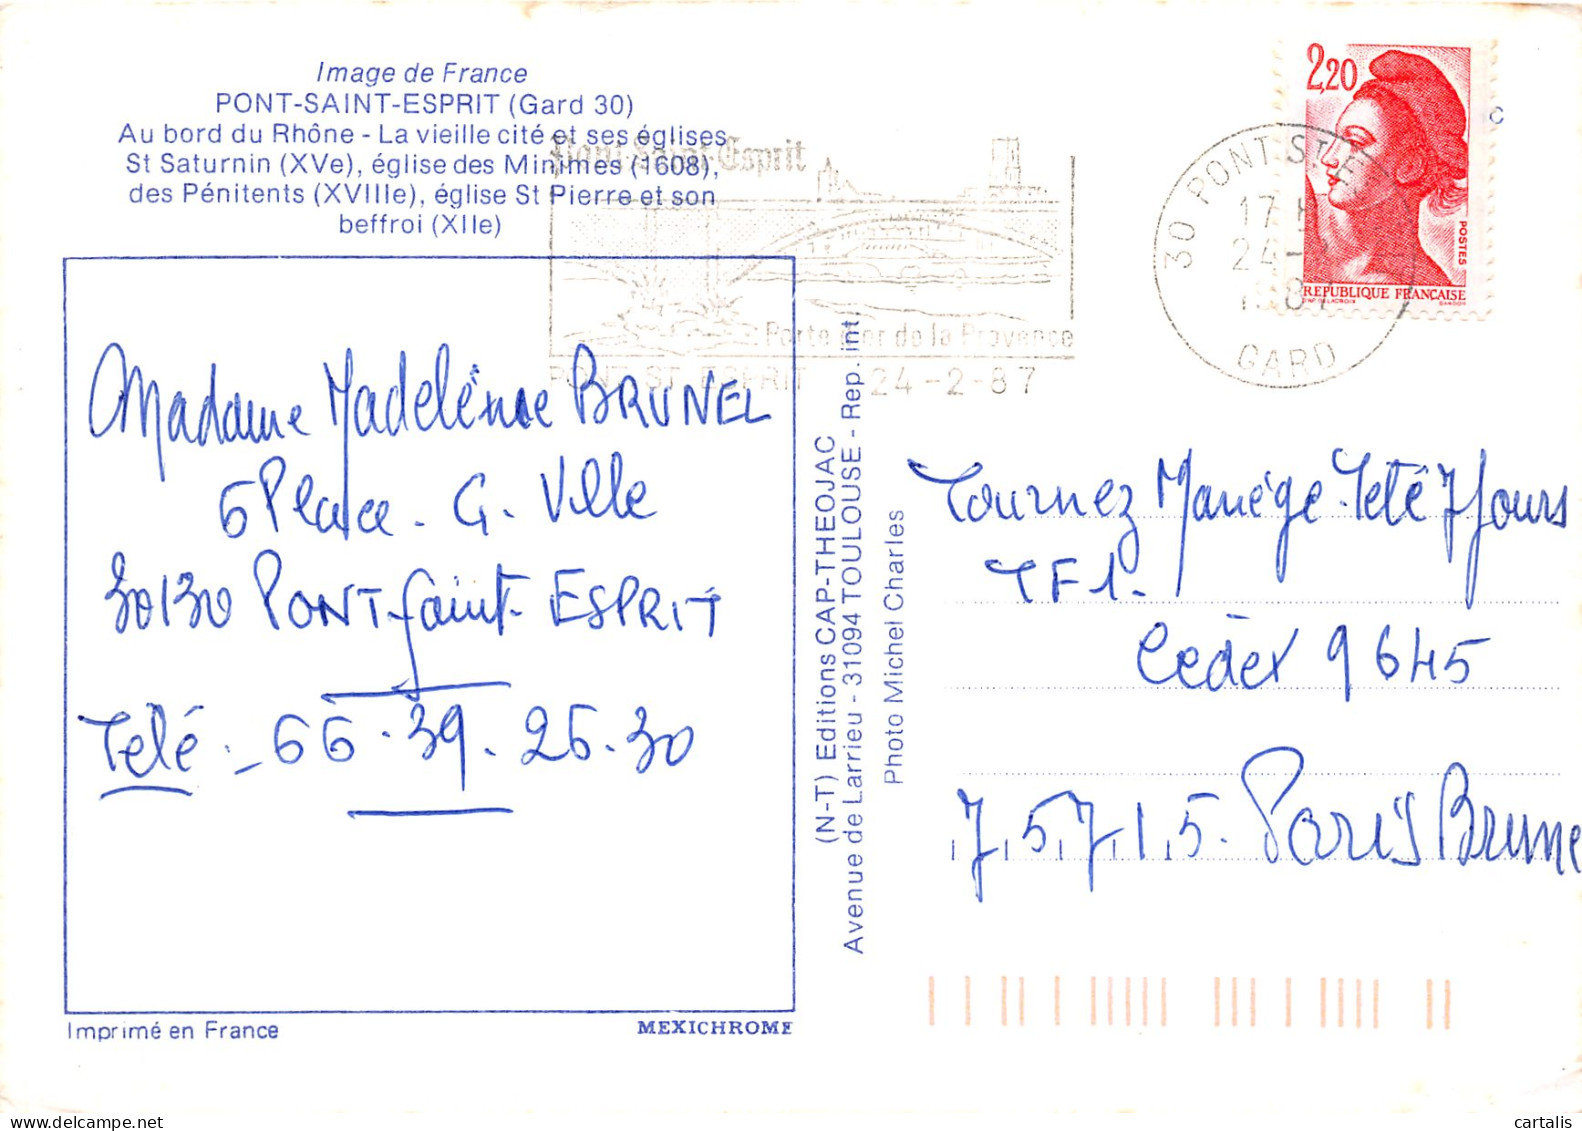 Image de France
PONT-SAINT-ESPRIT (Gard 30)
Au bord du Rhône - La vieille cité et ses églises
St Saturnin (XVe), église des Minimes (1608),
des Pénitents (XVIIIe), église St Pierre et son
beffroi (XIIe)
Pont-Saint-Esprit
Porte d'or de la Provence
PONT ST ESPRIT 24-2-87
2,20
POSTES
REPUBLIQUE FRANÇAISE
30 PONT ST E
17 H
24-
1987
GARD
C
Madame Madelénne BRUNEL
6 Place. G. Ville
30130 PONT-Saint-ESPRIT
Télé :- 66.39.26.30
(N-T) Editions CAP-THEOJAC
Avenue de Larrieu - 31094 TOULOUSE - Rep. int.
Photo Michel Charles
Tournez Manége. Télé 7 Jours
TF1.
Cedex 9645
75715. Paris Brune
Imprimé en France
MEXICHROME
cartalis